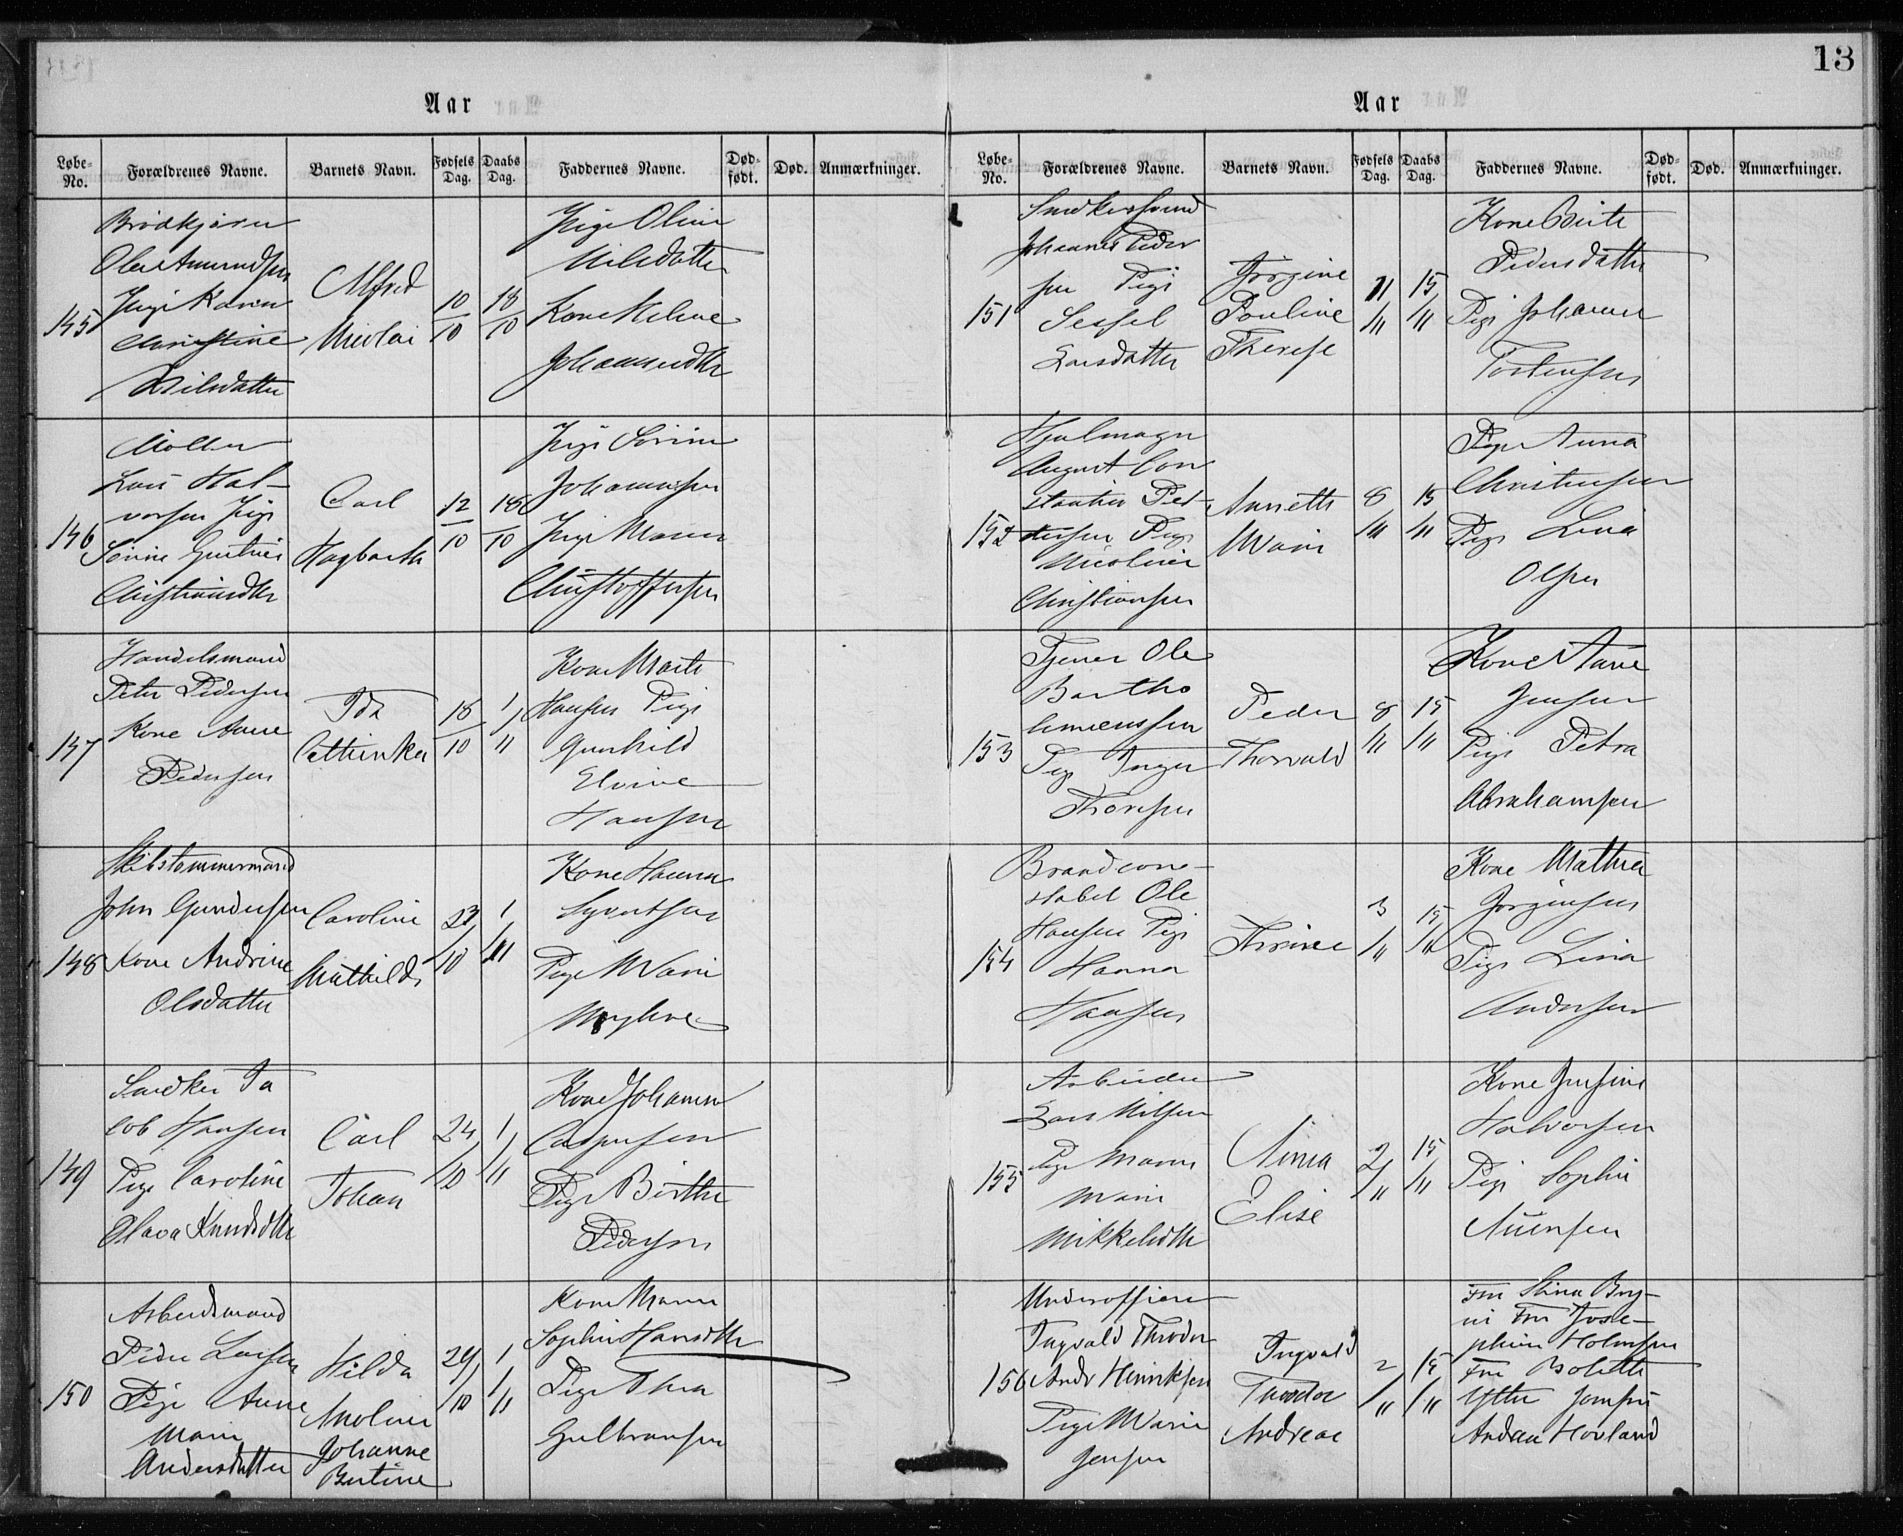 13
Aar
Løbe-No. Forældrenes Navne. Barnets Navn. Fødsels Dag. Daabs Dag. Faddernes Navne. Død-født. Død. Anmærkninger.
145
Brødkjører
Ole Amundsen
Pige Karen
Christine
Nilsdatter
Alfred
Nicolai
10/10
18/10
Pige Oline
Nilsdatter
Kone Helene
Johannesdtr
146
Møller
Lars Hal-
vorsen Pige
Sørine
Christiansdtr
Carl
Hagbarth
12/10
18/10
Pige Sørine
Johannesen
Pige Maren
Christoffersen
147
Handelsmand
Peter Pedersen
Kone Anne
Pedersen
Ida
Cathinka
18/10
1/11
Kone Marte
Hansen Pige
Gunhild
Elvine
Hansen
148
Skibstømmermand
John Gundersen
Kone Andrine
Olsdatter
Caroline
Mathilde
23/10
1/11
Kone Hanna
Syvertsen
Pige Marie
Myhre
149
Snedker Ja
cob Hansen
Pige Caroline
Olava Knudsdtr
Carl
Johan
24/10
1/11
Kone Johanne
Caspersen
Pige Birthe
Pedersen
150
Arbeidsmand
Peder Larsen
Pige Anne
Marie
Andersdatter
Hilda
Nicoline
Johanne
Bertine
29/10
1/11
Kone Maren
Sophie Hansdtr
Pige Thea
Gulbransen
Aar
Løbe-No. Forældrenes Navne. Barnets Navn. Fødsels Dag. Daabs Dag. Faddernes Navne. Død-født. Død. Anmærkninger.
151
Snedkersvend
Johannes Peder
sen Pige
Sessel
Larsdatter
Jørgine
Pauline
Therese
11/11
15/11
Kone Berte
Pedersdatter
Pige Johanne
Torstensen
152
Hjulmager
August Con
stantin Pet-
tersen Pige
Nicoline
Christiansen
Annette
Marie
8/11
15/11
Pige Anna
Christensen
Pige Lina
Olsen
153
Tjener Ole
Bartho
lomeussen
Pige Inger
Thorsen
Peder
Thorvald
8/11
15/11
Kone Anne
Jensen
Pige Petra
Abrahamsen
154
Brandcon-
stabel Ole
Hansen Pige
Hanna
Hansen
Thrine
3/11
15/11
Kone Mathea
Jørgensen
Pige Lina
Andersen
155
Arbeider
Lars Nilsen
Pige Maren
Marie
Mikkelsdtr
Anna
Elise
2/11
15/11
Kone Jensine
Halvorsen
Pige Sophie
156
Underofficer
Ingvald Theodor
Andr Henriksen
Pige Marie
Jensen
Ingvald
Theodor
Andreas
2/11
15/11
Fru Stina
Fru Jose-
phine Holmsen
Fru Bolette
Hovland